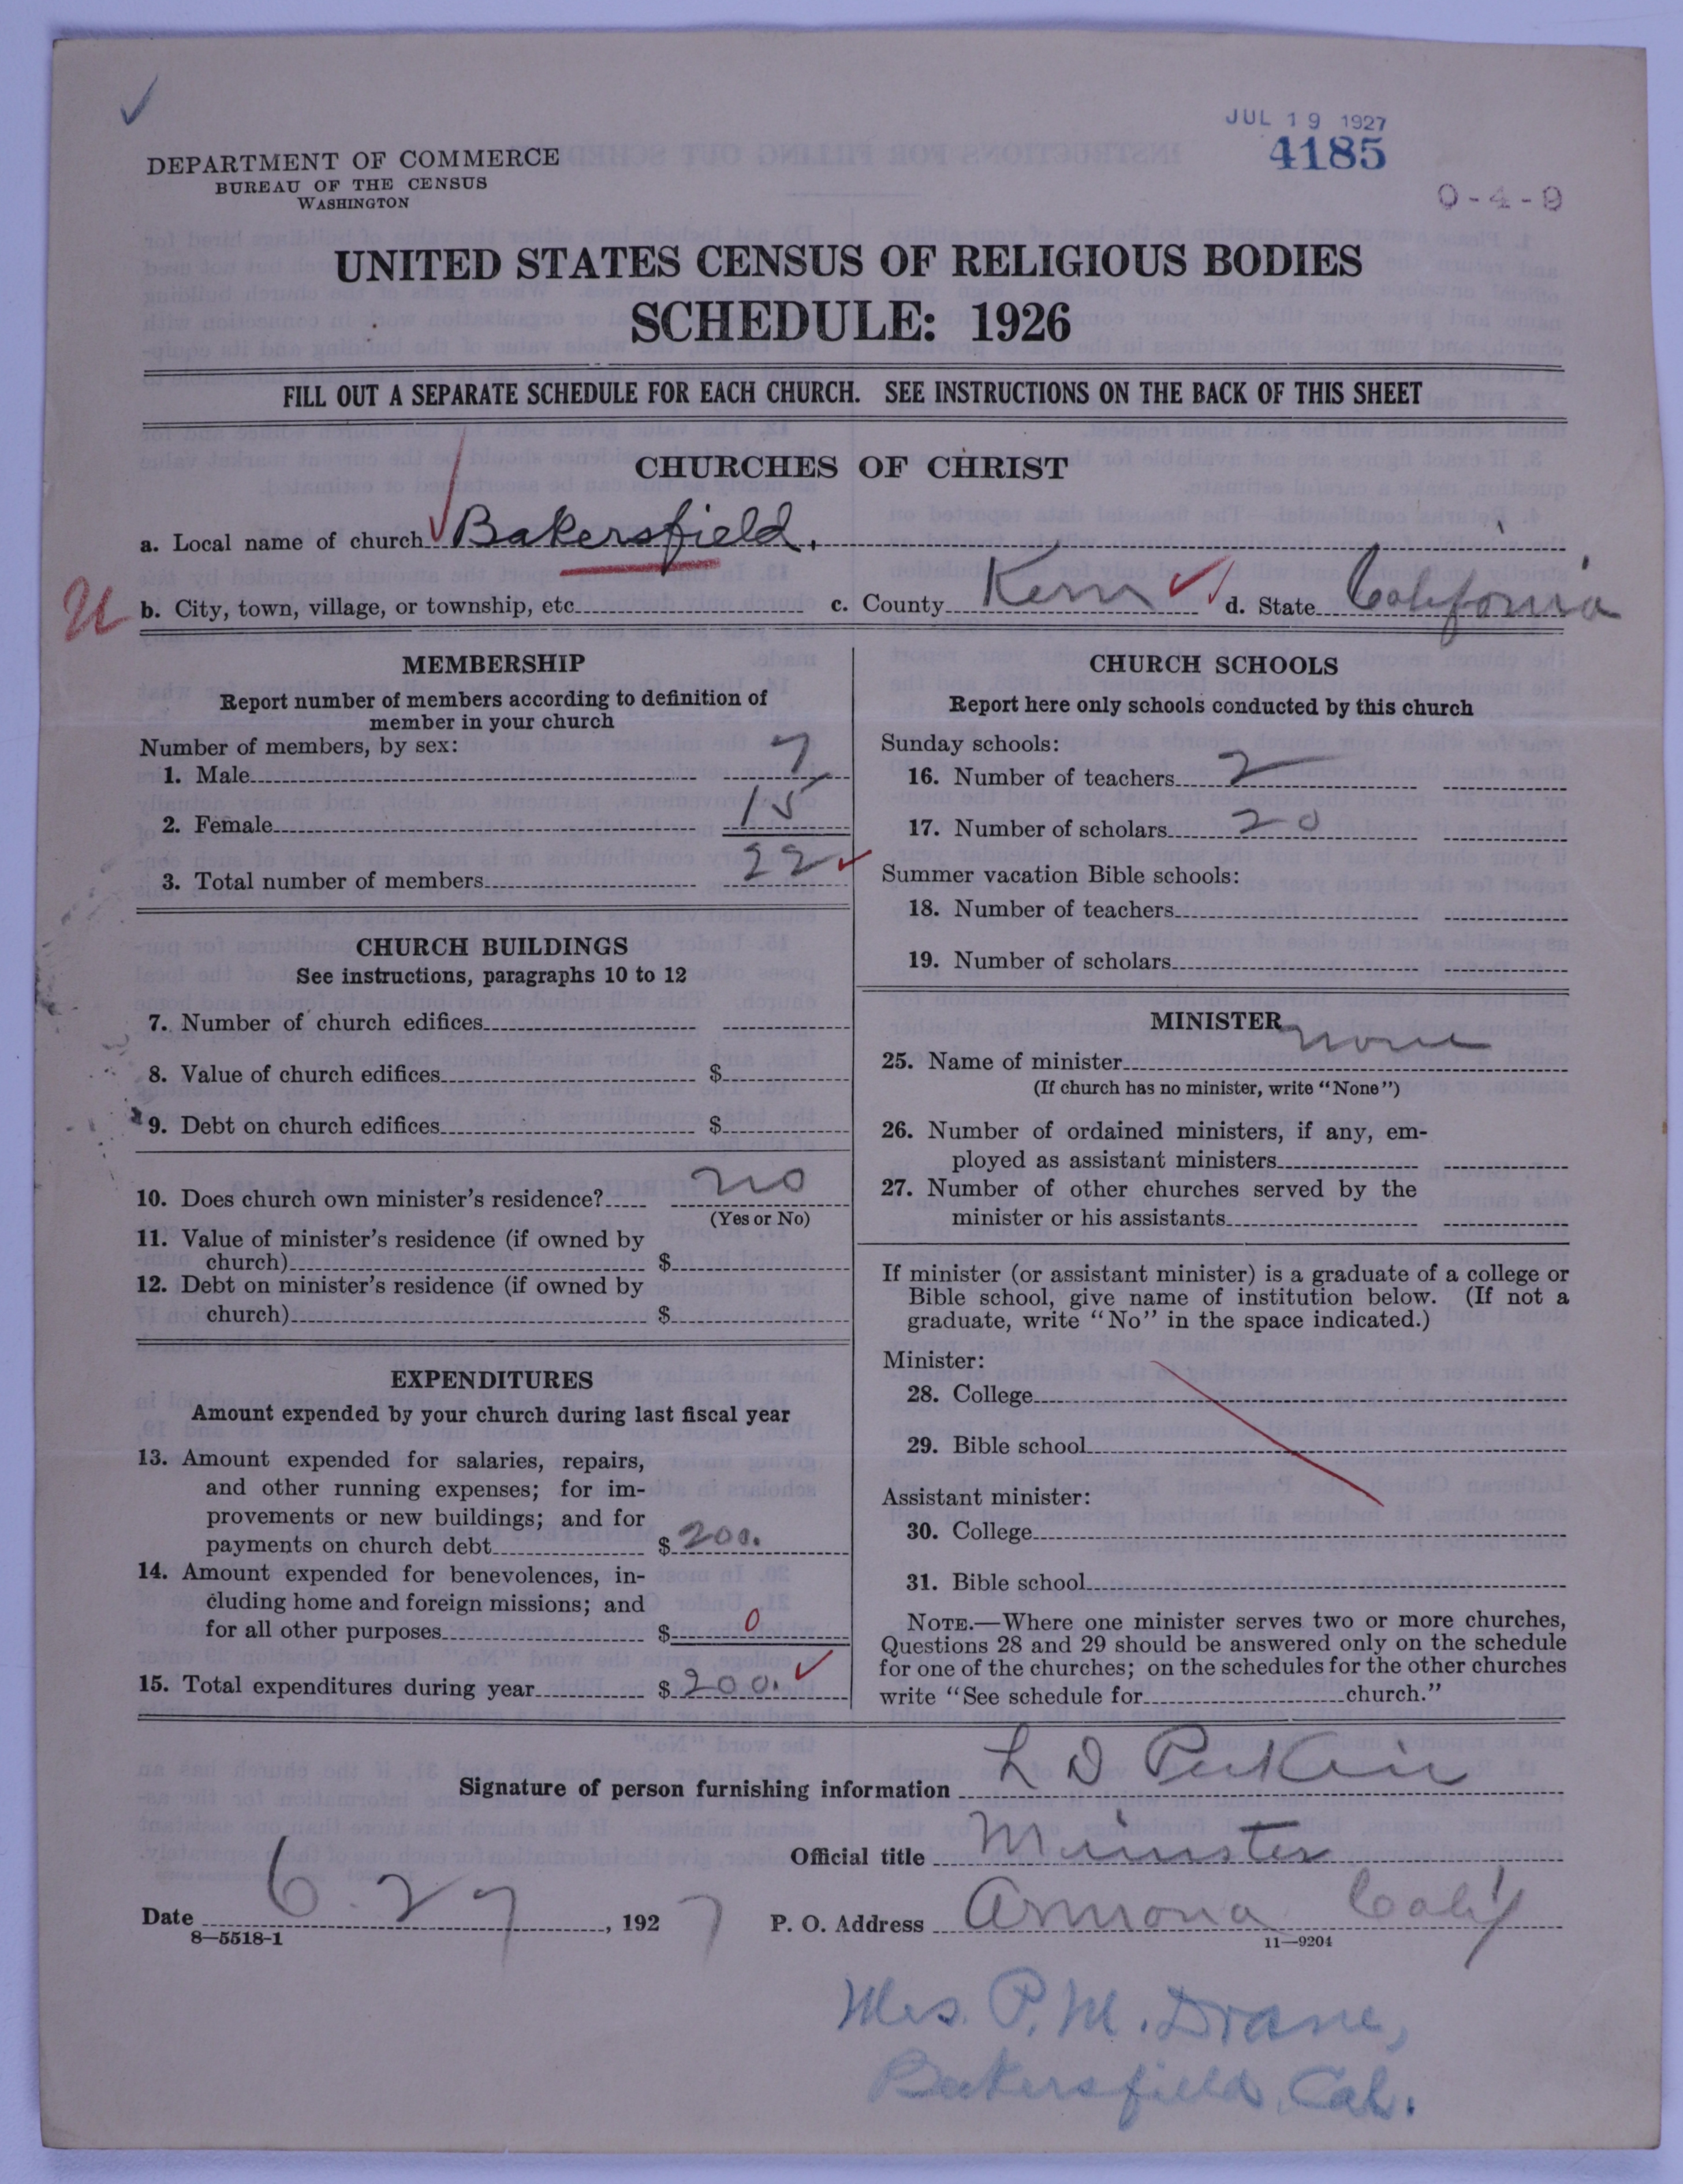 JUL 19 1927
4185
0-4-9
DEPARTMENT OF COMMERCE
BUREAU OF THE CENSUS
WASHINGTON
UNITED STATES CENSUS OF RELIGIOUS BODIES
SCHEDULE: 1926
FILL OUT A SEPARATE SCHEDULE FOR EACH CHURCH. SEE INSTRUCTIONS ON THE BACK OF THIS SHEET
CHURCHES OF CHRIST
a. Local name of church Bakersfield,
b. City, town, village, or township, etc. c. County Kern d. State California
MEMBERSHIP
Report number of members according to definition of
member in your church
Number of members, by sex:
1. Male 7
2. Female 15
3. Total number of members 22
CHURCH BUILDINGS
See instructions, paragraphs 10 to 12
7. Number of church edifices
8. Value of church edifices $
9. Debt on church edifices $
10. Does church own minister's residence? no
(Yes or No)
11. Value of minister's residence (if owned by
church) $
12. Debt on minister's residence (if owned by
church) $
EXPENDITURES
Amount expended by your church during last fiscal year
13. Amount expended for salaries, repairs,
and other running expenses; for im-
provements or new buildings; and for
payments on church debt $ 200.
14. Amount expended for benevolences, in-
cluding home and foreign missions; and
for all other purposes $ 0
15. Total expenditures during year $ 200.
CHURCH SCHOOLS
Report here only schools conducted by this church
Sunday schools:
16. Number of teachers 2
17. Number of scholars 20
Summer vacation Bible schools:
18. Number of teachers
19. Number of scholars
MINISTER
25. Name of minister none
(If church has no minister, write "None")
26. Number of ordained ministers, if any, em-
ployed as assistant ministers
27. Number of other churches served by the
minister or his assistants
If minister (or assistant minister) is a graduate of a college or
Bible school, give name of institution below. (If not a
graduate, write "No" in the space indicated.)
Minister:
28. College
29. Bible school
Assistant minister:
30. College
31. Bible school
NOTE.—Where one minister serves two or more churches,
Questions 28 and 29 should be answered only on the schedule
for one of the churches; on the schedules for the other churches
write "See schedule for church."
Signature of person furnishing information L D Perkins
Official title Minister
Date 6-27, 1927 P. O. Address Armona Calif
8—5518-1 11—9204
Mrs. P. M. Drane,
Bakersfield, Cal.